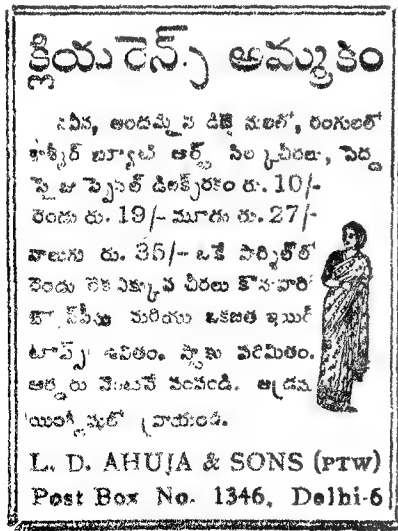 క్లియరెన్స్ అమ్మకం
నవీన, అందమైన డిజైనులలో, రంగులలో
కాశ్మీర్ బ్యూటి ఆర్ట్ సిల్కుచీరలు, పెద్ద
సైజు స్పెషల్ డిలక్స్‌రకం రు. 10/-
రెండు రు. 19/- మూడు రు. 27/-
నాలుగు రు. 35/- ఒకే పార్శిల్‌లో
రెండు లేక ఎక్కువ చీరలు కొనువారికి
బ్లౌస్‌పీసు మరియు ఒకజత ఇయర్
టాప్సు ఉచితం. స్టాకు పరిమితం.
ఆర్డరు వెంటనే పంపండి. అడ్రసు
యింగ్లీషులో వ్రాయండి.
L. D. AHUJA & SONS (PTW)
Post Box No. 1346, Delhi-6